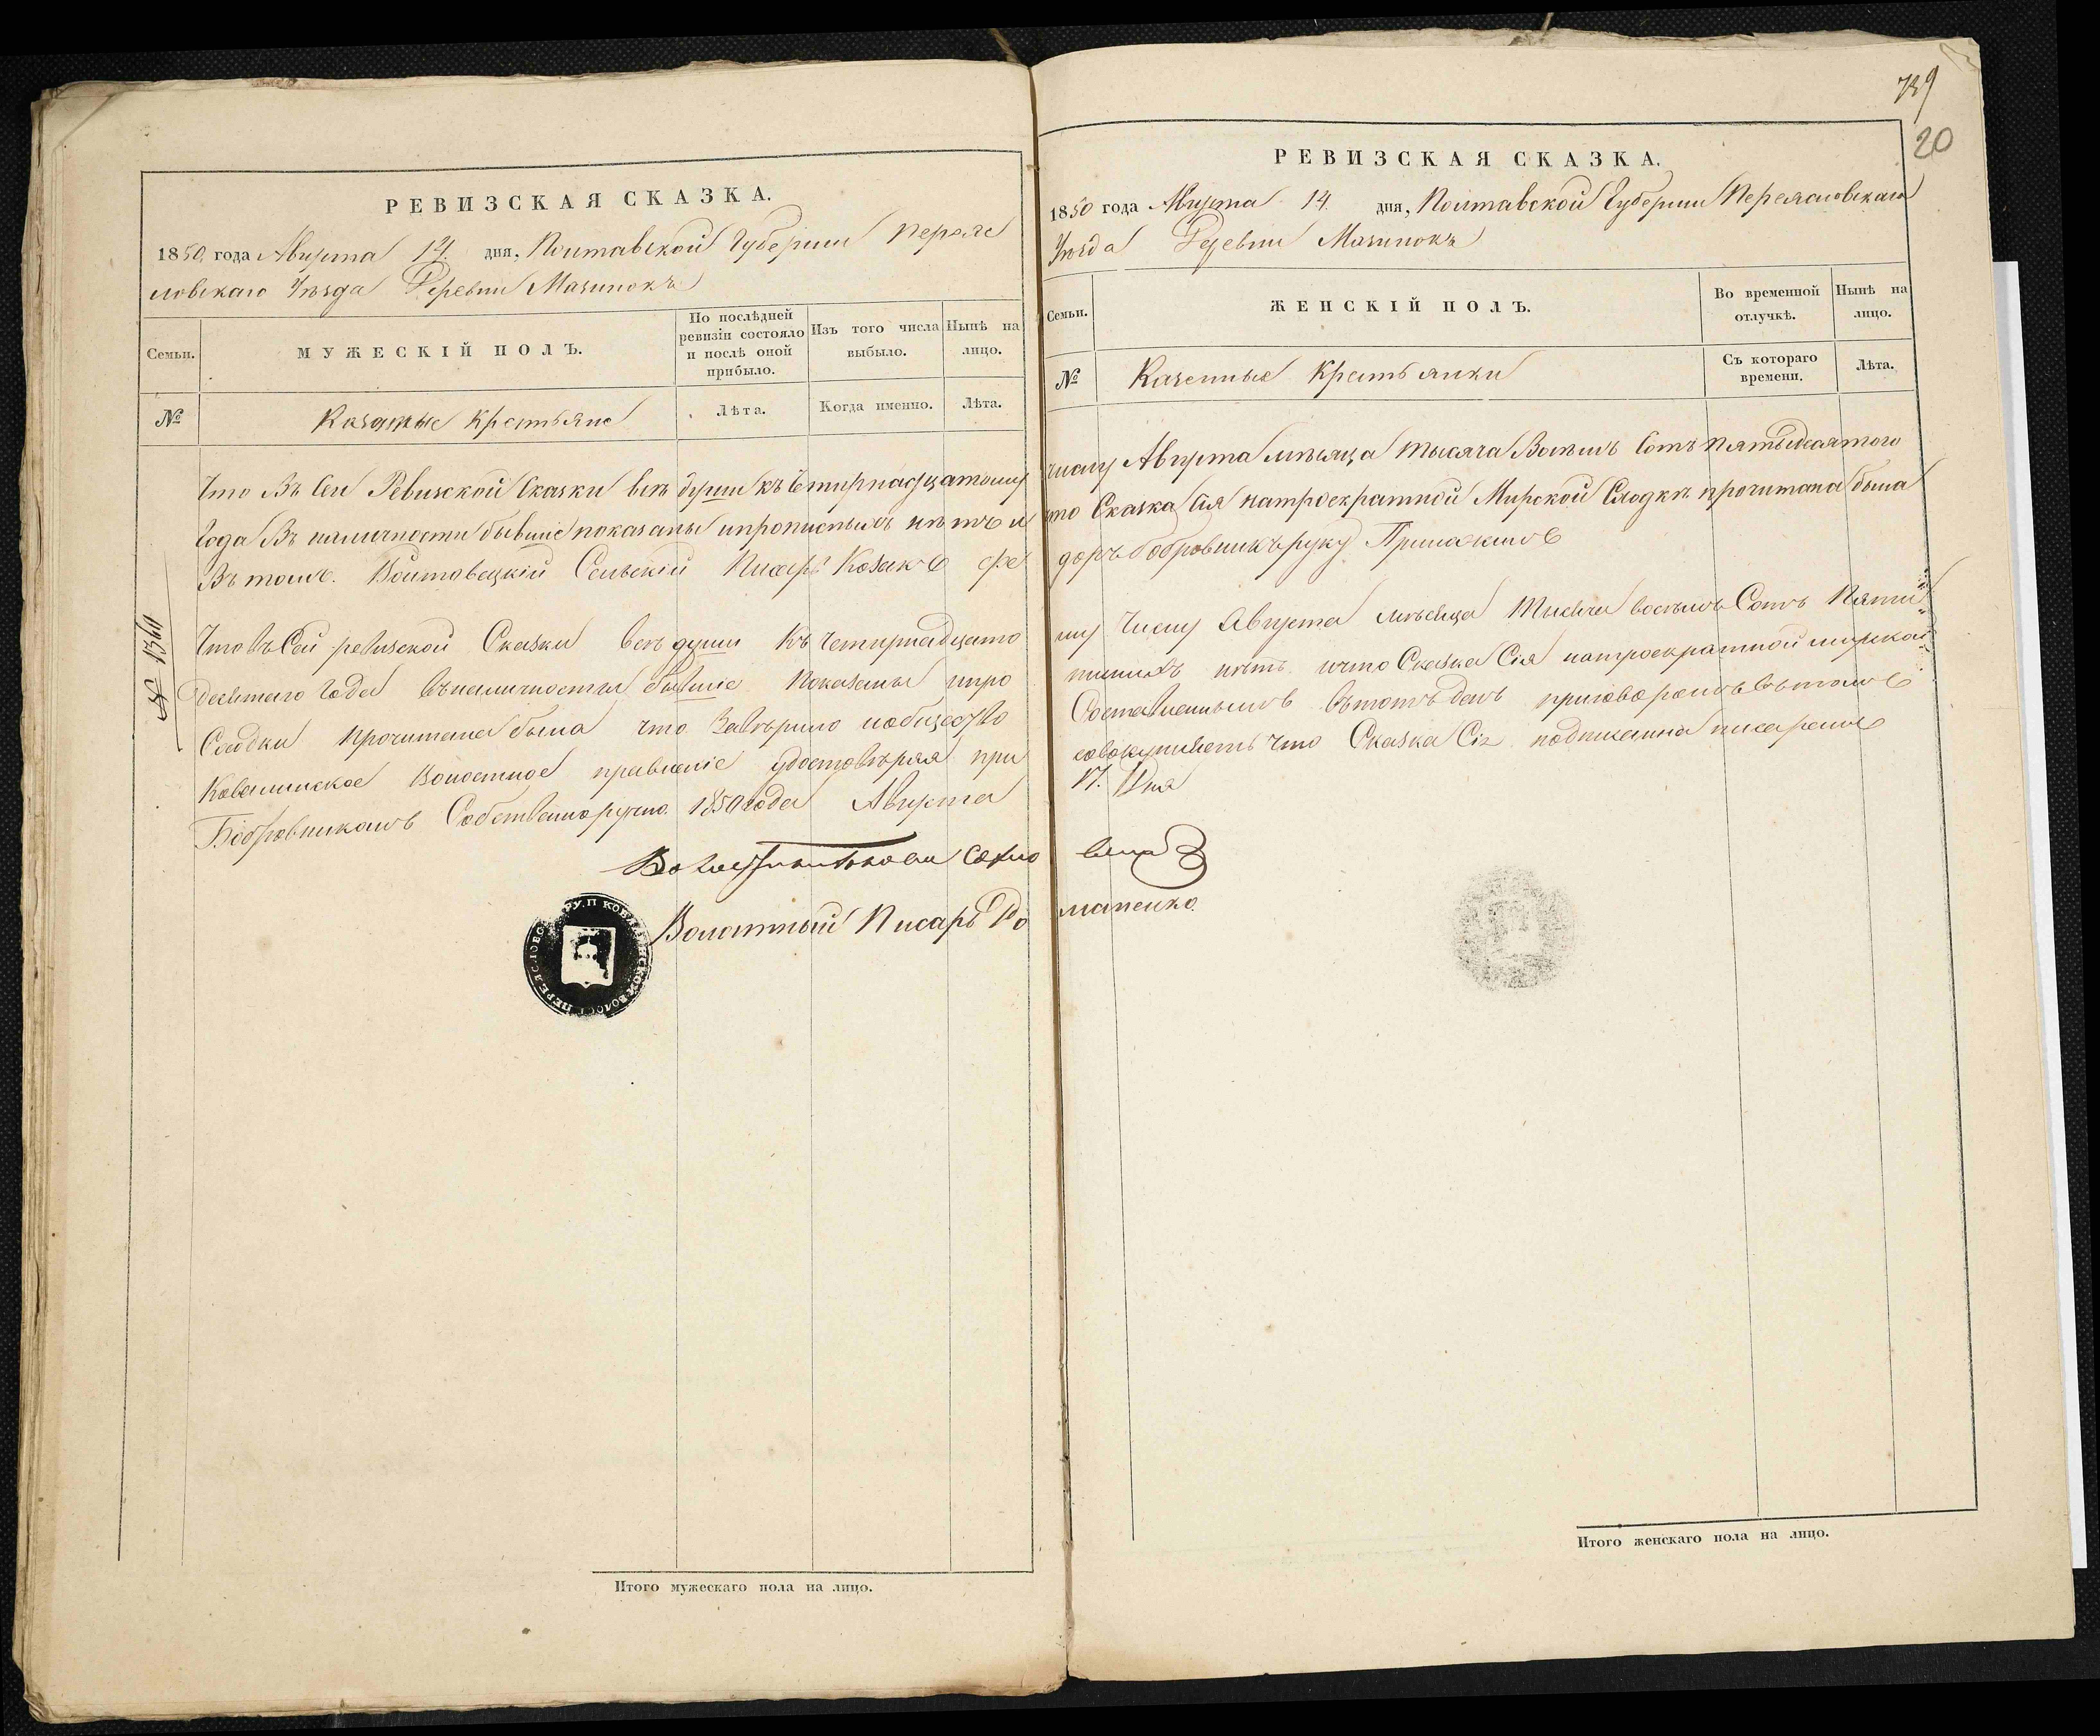 РЕВИЗСКАЯ СКАЗКА.
1850 года Августа 14 дня, Полтавской Губернии Переяс
ловскаго Уѣзда Деревни Мазинокъ
Семьи.
МУЖЕСКІЙ ПОЛЪ.
По послѣдней ревизіи состояло и послѣ оной прибыло.
Изъ того числа выбыло.
Нынѣ на лицо.
№
Казенные Крестьяне
Лѣта.
Когда именно.
Лѣта.
Что Въ Сей Ревизской Сказки всѣ души къ Четирнадцатому
Года Въ наличности бывшіе показаны и прописныхъ нѣтъ и
Въ томъ. Войтовецкій Сельскій Писарь Козакъ Фе
№ 1360
Что въ Сей ревизской Сказки всѣ души къ Четирнадцато
десятого Года въ наличности бывшіе показаны и про
Сходки прочитана была что завѣрило и общество
Ковалинское Волостное правленіе удостовѣряя при
Бобровникомъ Собственоручно. 1850 года Августа
Волостный Писарь До
Итого мужескаго пола на лицо.
739
20
РЕВИЗСКАЯ СКАЗКА.
1850 года Августа 14 дня, Полтавской Губернии Переясловскаго
Уѣзда Деревни Мазинокъ
Семьи.
ЖЕНСКІЙ ПОЛЪ.
Во временной отлучкѣ.
Нынѣ на лицо.
№
Казенные Крестьянки
Съ котораго времени.
Лѣта.
числу Августа мѣсяца тысяча Восемъ Сотъ пятьдесятого
что Сказка Сія на троекратной Мирской Сходкѣ прочитана была
доръ бобровникъ руку Приложилъ
му Числу Августа мѣсяца Тысяча восемъ Сотъ Пяти
писныхъ нѣтъ и что Сказка Сія на троекратной мирской
Составленнымъ въ тотъ день приговоромъ въ томъ
совокупляетъ что Сказка Сія подписанна писаремъ
14. Дня
маненко.
Итого женскаго пола на лицо.